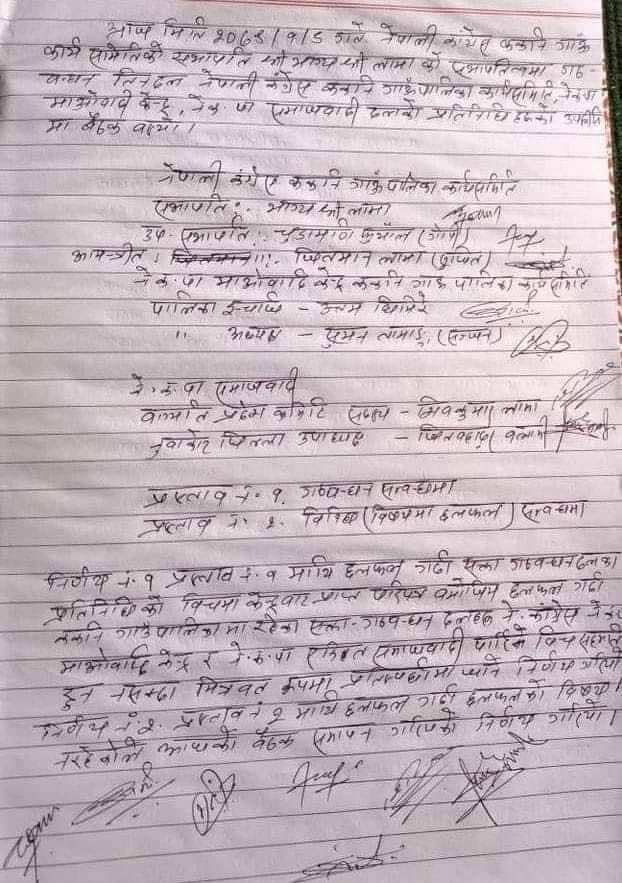 आज मिति २०७९/१/८ गते नेपाली कांग्रेस ककनि गाउँ
कार्य समितिको सभापति श्री भाग्य श्री लामा को सभापतित्वमा गठ-
बन्धन तिनदल नेपाली कंग्रेस ककनि गाउँपालिका कार्यसमिति, ने.क.पा
माओवादी केन्द्र, ने.क.पा समाजवादी दलको प्रतिनिधि हरुको उपस्थिति
मा बैठक बस्यो।
नेपाली कंग्रेस ककनि गाउँपालिका कार्यसमिति
सभापति : भाग्य श्री लामा
उप-सभापति : चुडामणि (गोपी)
आमन्त्रीत : जितमान लामा
ने.क.पा माओवादि केन्द्र ककनि गाउँ पालिका कार्यसमिति
पालिका इन्चार्ज - उत्तम घिमिरे
" अध्यक्ष - सुमन तामाङ्ग
ने.क.पा समाजवादी
वाग्मति प्रदेश कमिटि सदस्य - शिवकुमार लामा
नुवाकोट जिल्ला उपाध्यक्ष - जितबहादुर
प्रस्ताव नं. १. गठबन्धन सम्बन्धमा
प्रस्ताव नं. २. विविध (विषयमा छलफल) सम्बन्धमा
निर्णय नं. १ प्रस्ताव नं. १ माथि छलफल गर्दा सत्ता गठबन्धन दलका
प्रतिनिधिको विचमा केन्द्रबाट प्राप्त परिपत्र बमोजिम छलफल गर्दा
ककनि गाउँपालिकामा रहेका सत्ता-गठबन्धन दलहरु ने. कांग्रेस ने.क.पा
माओवादि केन्द्र र ने.क.पा एकिकृत समाजवादी पार्टिको विच सहमति
हुन नसक्दा मित्रवत रुपमा प्रतिस्पर्धामा जाने निर्णय गरियो
निर्णय नं. २. प्रस्ताव नं २ माथि छलफल गर्दा छलफलको विषय
नरहेकोले आजको बैठक समापन गरिएको निर्णय गरियो।